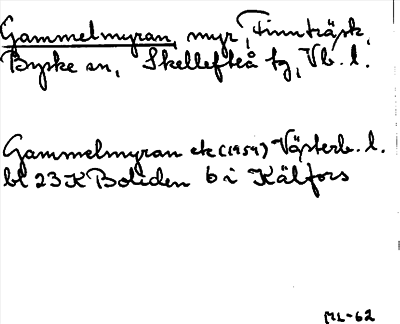 Gammelmyran, myr, Finnträsk,
Byske sn, Skellefteå tg, Vb. l.
Gammelmyran ek (1959) Västerb. l.
bl 23K Boliden 6 i Kälfors
ML-62